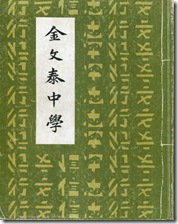 金文泰中學